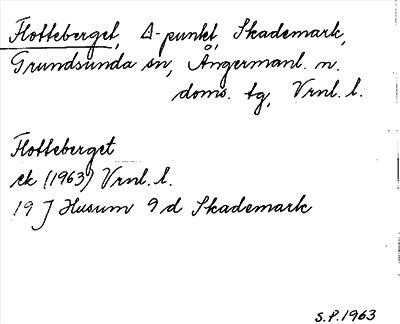 Flotteberget, Δ-punkt, Skademark,
Grundsunda sn, Ångermanl. n.
doms. tg, Vrnl. l.
Flotteberget
ek (1963) Vrnl. l.
19 J Husum 9 d Skademark
S.P. 1963